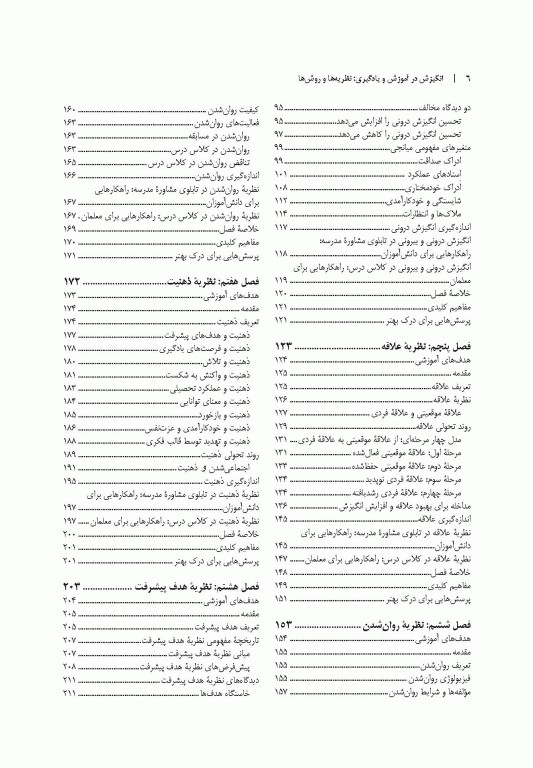 ۶ | انگیزش در آموزش و یادگیری: نظریه‌ها و روش‌ها
دو دیدگاه مخالف ۹۵
تحسین انگیزش درونی را افزایش می‌دهد ۹۵
تحسین انگیزش درونی را کاهش می‌دهد ۹۷
متغیرهای مفهومی میانجی ۹۹
ادراک صداقت ۹۹
اسنادهای عملکرد ۱۰۱
ادراک خودمختاری ۱۰۸
شایستگی و خودکارآمدی ۱۱۲
ملاک‌ها و انتظارات ۱۱۴
اندازه‌گیری انگیزش درونی ۱۱۷
انگیزش درونی و بیرونی در تابلوی مشاورهٔ مدرسه:
راهکارهایی برای دانش‌آموزان ۱۱۸
انگیزش درونی و بیرونی در کلاس درس: راهکارهایی برای
معلمان ۱۱۹
خلاصهٔ فصل ۱۲۰
مفاهیم کلیدی ۱۲۱
پرسش‌هایی برای درک بهتر ۱۲۱
فصل پنجم: نظریهٔ علاقه ۱۲۳
هدف‌های آموزشی ۱۲۴
مقدمه ۱۲۵
تعریف علاقه ۱۲۵
نظریهٔ علاقه ۱۲۶
علاقهٔ موقعیتی و علاقهٔ فردی ۱۲۷
روند تحولی علاقه ۱۲۹
مدل چهار مرحله‌ای: از علاقهٔ موقعیتی به علاقهٔ فردی ۱۳۱
مرحلهٔ اول: علاقهٔ موقعیتی فعال‌شده ۱۳۱
مرحلهٔ دوم: علاقهٔ موقعیتی حفظ‌شده ۱۳۳
مرحلهٔ سوم: علاقهٔ فردی نوپدید ۱۳۳
مرحلهٔ چهارم: علاقهٔ فردی رشدیافته ۱۳۴
مداخله برای بهبود علاقه و افزایش انگیزش ۱۳۶
اندازه‌گیری علاقه ۱۴۵
نظریهٔ علاقه در تابلوی مشاورهٔ مدرسه: راهکارهایی برای
دانش‌آموزان ۱۴۵
نظریهٔ علاقه در کلاس درس: راهکارهایی برای معلمان ۱۴۷
خلاصهٔ فصل ۱۴۸
مفاهیم کلیدی ۱۴۹
پرسش‌هایی برای درک بهتر ۱۵۱
فصل ششم: نظریهٔ روان‌شدن ۱۵۳
هدف‌های آموزشی ۱۵۴
مقدمه ۱۵۵
تعریف روان‌شدن ۱۵۵
فیزیولوژی روان‌شدن ۱۵۵
مؤلفه‌ها و شرایط روان‌شدن ۱۵۷
کیفیت روان‌شدن ۱۶۰
فعالیت‌های روان‌شدن ۱۶۳
روان‌شدن در مسابقه ۱۶۳
روان‌شدن در کلاس درس ۱۶۳
تناقض روان‌شدن در کلاس درس ۱۶۵
اندازه‌گیری روان‌شدن ۱۶۶
نظریهٔ روان‌شدن در تابلوی مشاورهٔ مدرسه: راهکارهایی
برای دانش‌آموزان ۱۶۷
نظریهٔ روان‌شدن در کلاس درس: راهکارهایی برای معلمان ۱۶۷
خلاصهٔ فصل ۱۶۹
مفاهیم کلیدی ۱۷۰
پرسش‌هایی برای درک بهتر ۱۷۱
فصل هفتم: نظریهٔ ذهنیت ۱۷۲
هدف‌های آموزشی ۱۷۳
مقدمه ۱۷۴
تعریف ذهنیت ۱۷۴
ذهنیت و هدف‌های پیشرفت ۱۷۷
ذهنیت و فرصت‌های یادگیری ۱۷۸
ذهنیت و تلاش ۱۸۰
ذهنیت و واکنش به شکست ۱۸۱
ذهنیت و عملکرد تحصیلی ۱۸۳
ذهنیت و معنای توانایی ۱۸۴
ذهنیت و بازخورد ۱۸۵
ذهنیت و خودکارآمدی و عزت‌نفس ۱۸۶
ذهنیت و تهدید توسط قالب فکری ۱۸۸
روند تحولی ذهنیت ۱۸۹
اجتماعی‌شدن و ذهنیت ۱۹۱
اندازه‌گیری ذهنیت ۱۹۵
نظریهٔ ذهنیت در تابلوی مشاورهٔ مدرسه: راهکارهایی برای
دانش‌آموزان ۱۹۷
نظریهٔ ذهنیت در کلاس درس: راهکارهایی برای معلمان ۱۹۷
خلاصهٔ فصل ۲۰۰
مفاهیم کلیدی ۲۰۱
پرسش‌هایی برای درک بهتر ۲۰۱
فصل هشتم: نظریهٔ هدف پیشرفت ۲۰۳
هدف‌های آموزشی ۲۰۴
مقدمه ۲۰۵
تعریف هدف پیشرفت ۲۰۵
تاریخچهٔ مفهومی نظریهٔ هدف پیشرفت ۲۰۷
مبانی نظریهٔ هدف پیشرفت ۲۰۷
پیش‌فرض‌های نظریهٔ هدف پیشرفت ۲۰۸
دیدگاه‌های نظریهٔ هدف پیشرفت ۲۱۱
خاستگاه هدف‌ها ۲۱۱